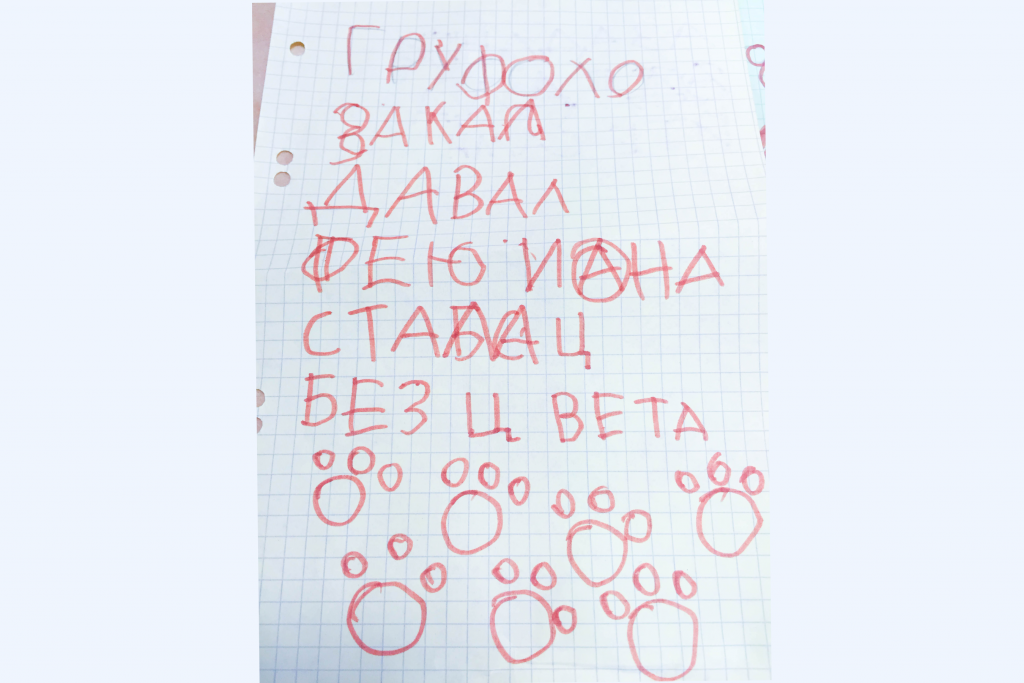 ГРУФОХО
ЗАКАЛ
ДАВАЛ
ФЕЮ ИАНА
СТАБАЦ
БЕЗ Ц ВЕТА